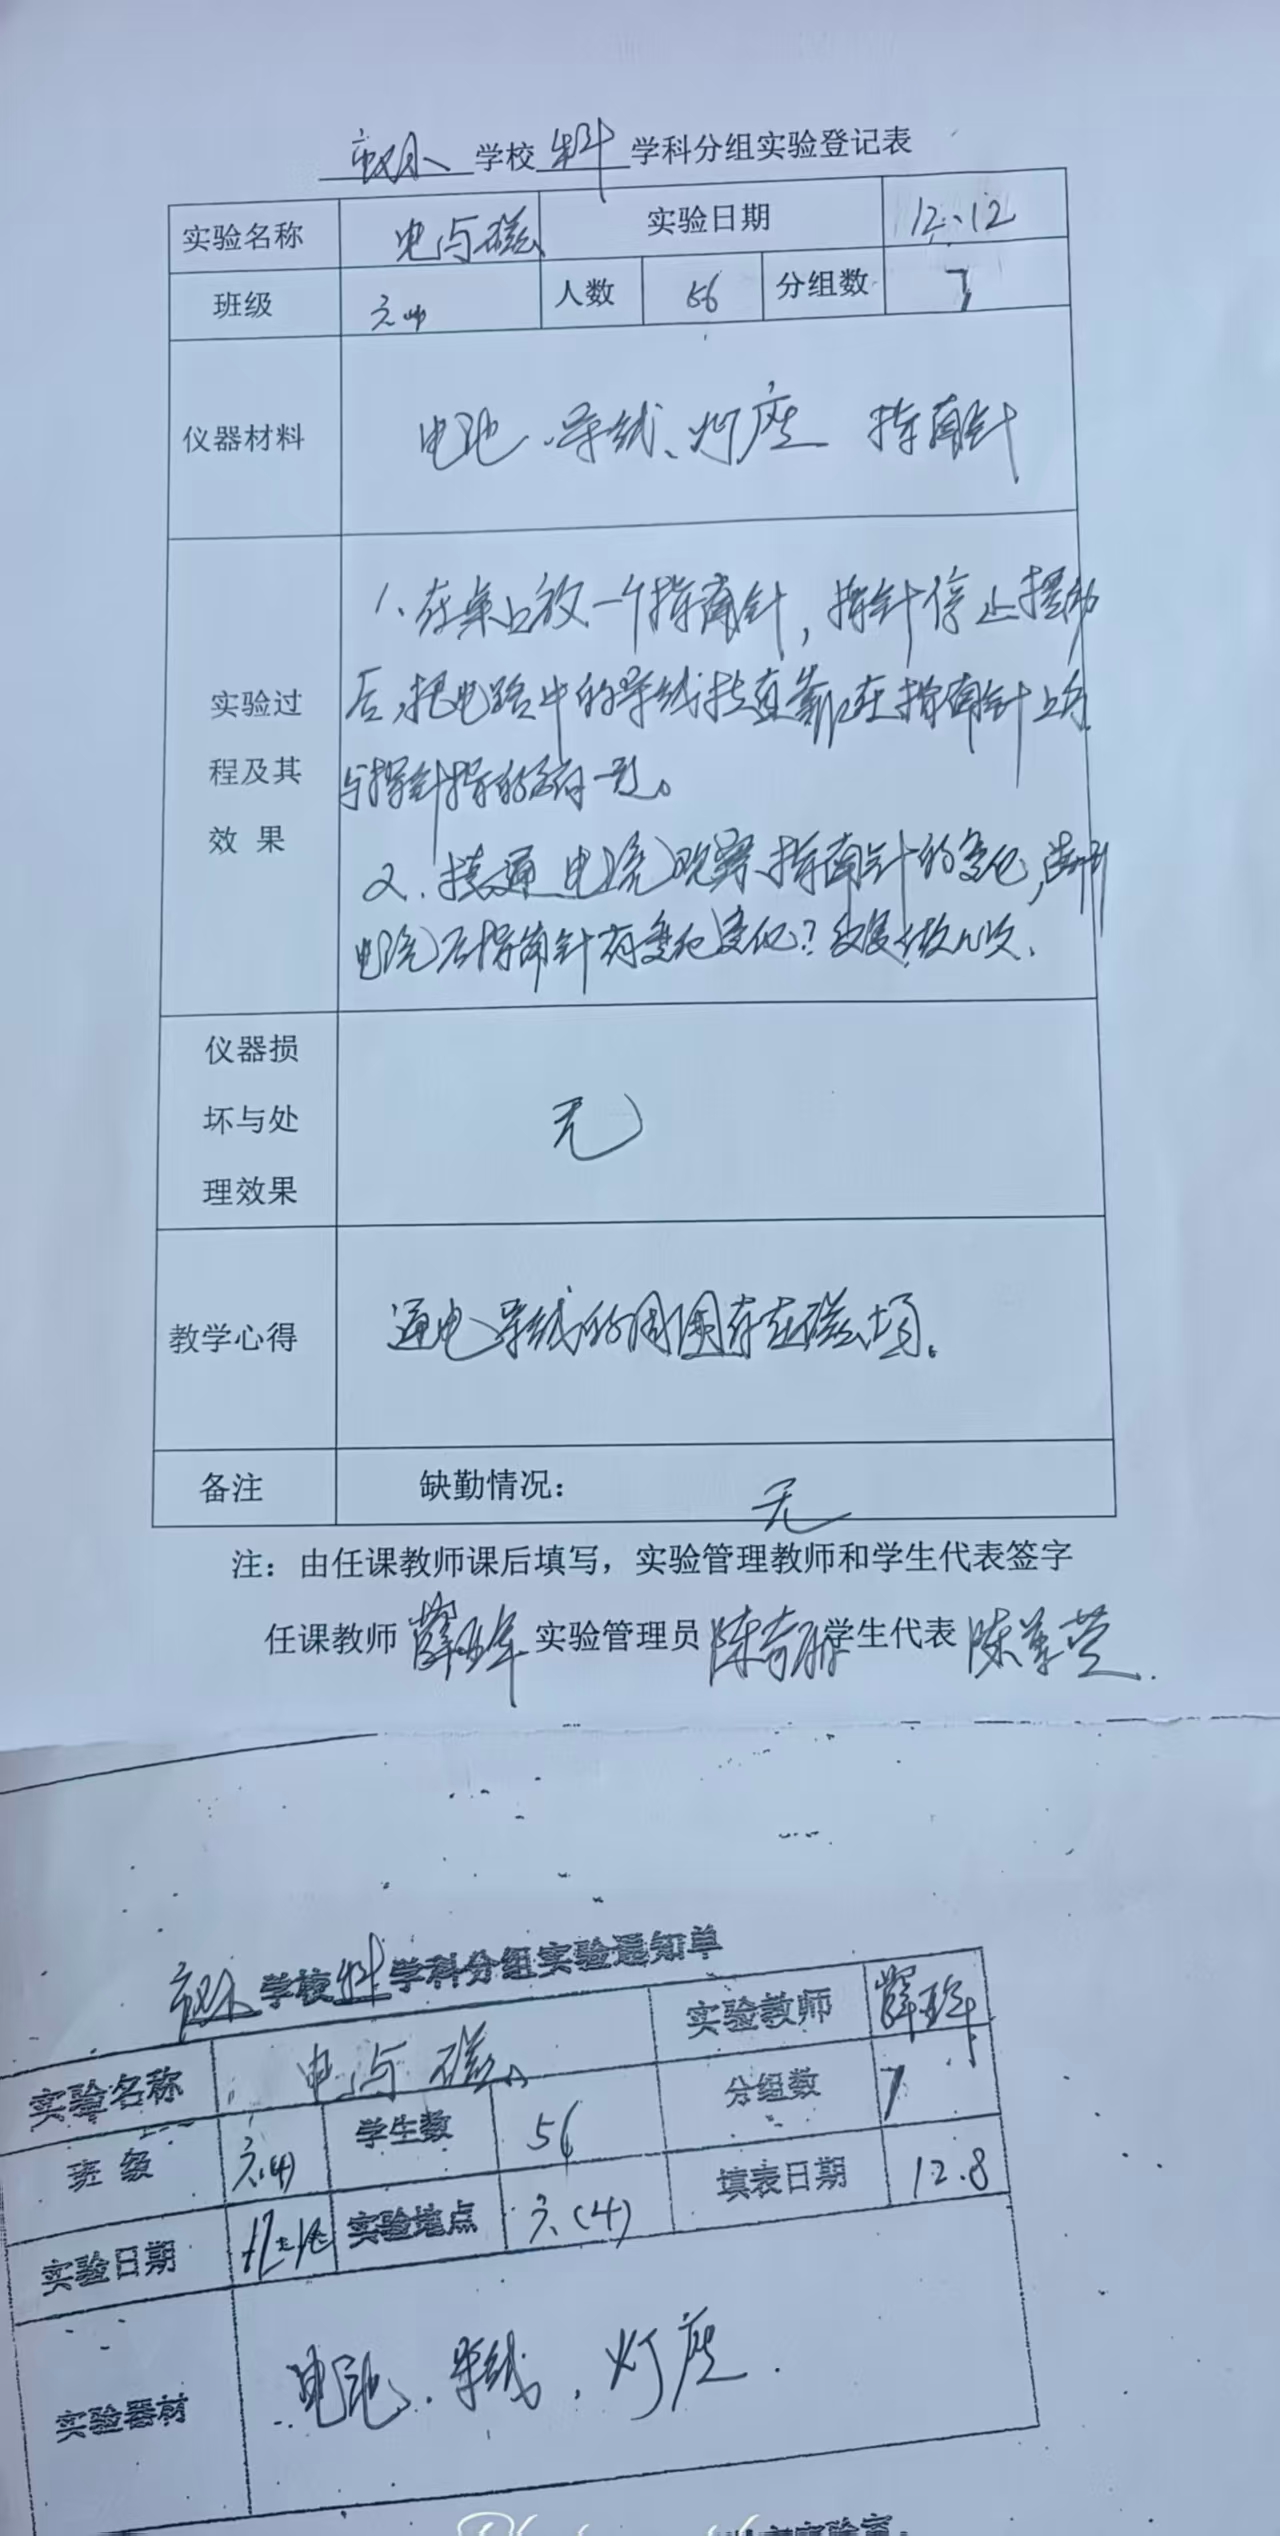 学校 科 学科分组实验登记表
实验名称 电与磁 实验日期 12.12
班级 六(4) 人数 56 分组数 7
仪器材料 电池、导线、灯座 指南针
1、在桌上放一个指南针，指针停止摆动
实验过 后，把电路中的导线拉直靠在指南针上方
程及其 与指针指的方向一致。
效 果 2、接通电流观察指南针的变化，断开
电流后指南针有变化变化？反复做几次.
仪器损
坏与处 无
理效果
教学心得 通电导线的周围存在磁场。
备注 缺勤情况： 无
注：由任课教师课后填写，实验管理教师和学生代表签字
任课教师 薛 实验管理员 陈奇丽 学生代表 陈
学校 科 学科分组实验通知单
实验名称 电与磁 实验教师 薛
班 级 六(4) 学生数 56 分组数 7
实验日期 实验地点 六(4) 填表日期 12.8
实验器材 电池、导线、灯座.